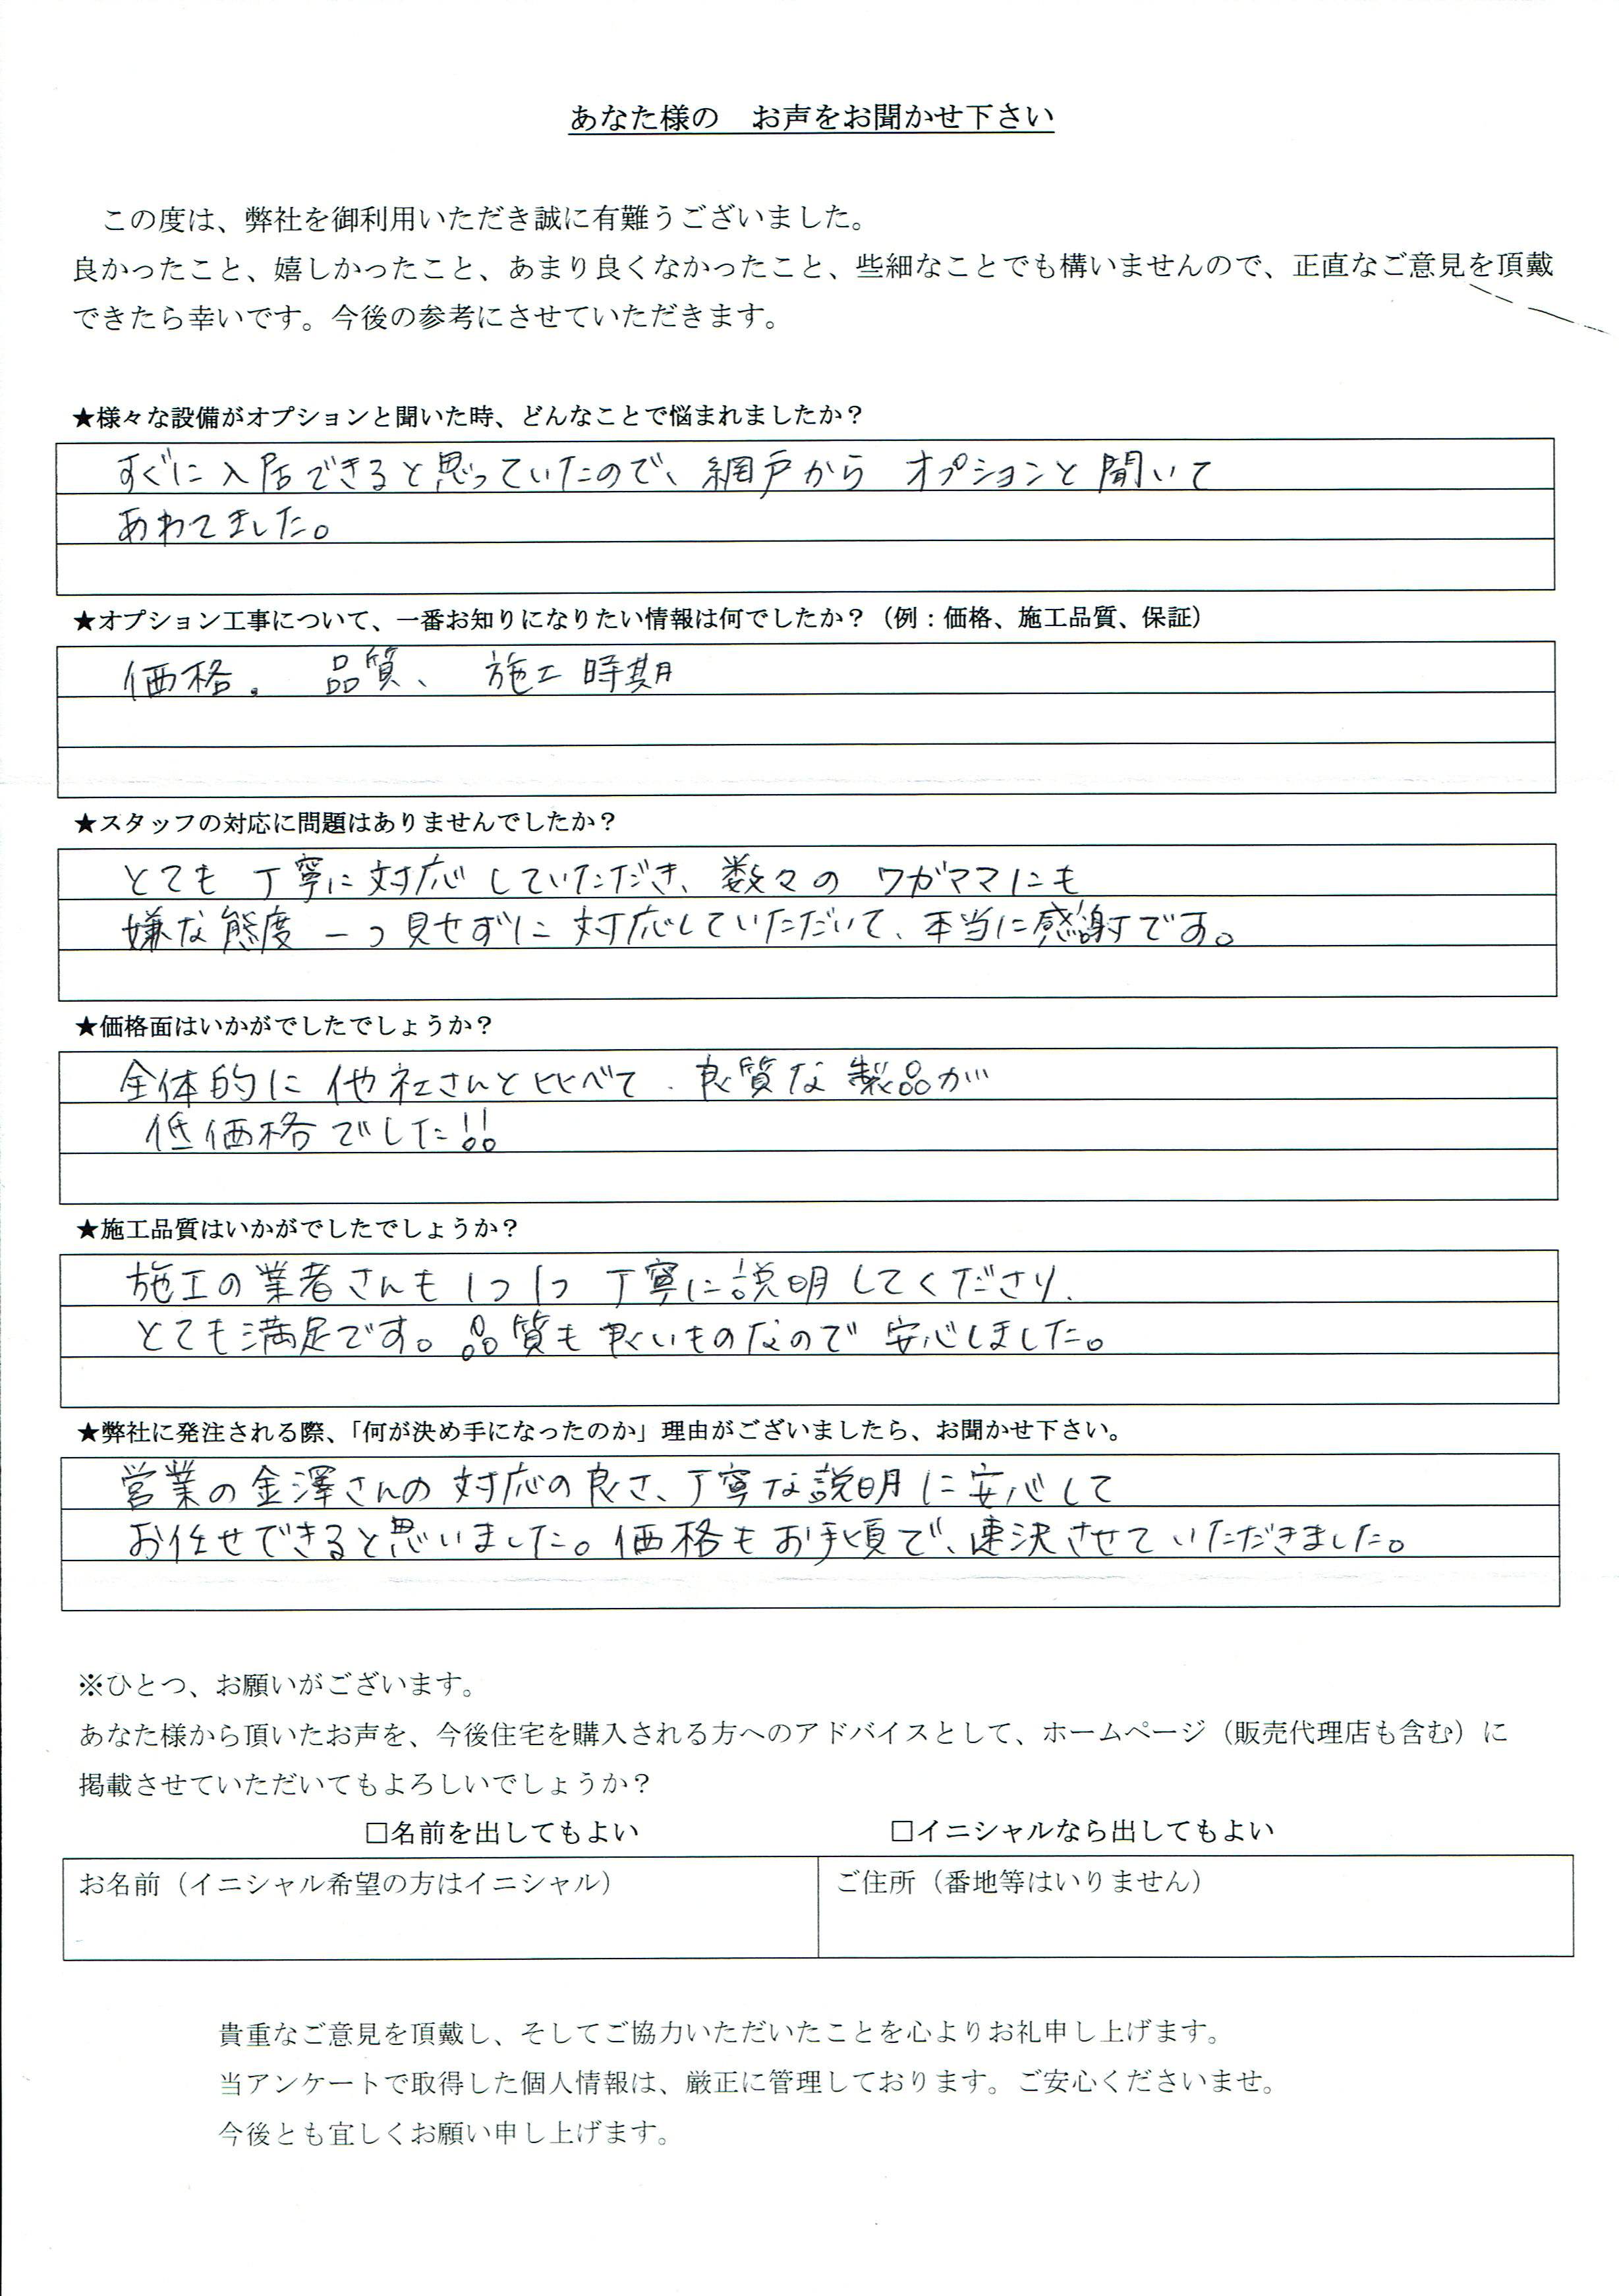 あなた様の　お声をお聞かせ下さい
この度は、弊社を御利用いただき誠に有難うございました。
良かったこと、嬉しかったこと、あまり良くなかったこと、些細なことでも構いませんので、正直なご意見を頂戴
できたら幸いです。今後の参考にさせていただきます。
★様々な設備がオプションと聞いた時、どんなことで悩まれましたか？
すぐに入居できると思っていたので、網戸から オプションと聞いて
あわてました。
★オプション工事について、一番お知りになりたい情報は何でしたか？（例：価格、施工品質、保証）
価格、品質、施工時期
★スタッフの対応に問題はありませんでしたか？
とても丁寧に対応していただき、数々のワガママにも
嫌な態度一つ見せずに対応していただいて、本当に感謝です。
★価格面はいかがでしたでしょうか？
全体的に他社さんと比べて、良質な製品が
低価格でした!!
★施工品質はいかがでしたでしょうか？
施工の業者さんも1つ1つ丁寧に説明してくださり、
とても満足です。品質も良いものなので安心しました。
★弊社に発注される際、「何が決め手になったのか」理由がございましたら、お聞かせ下さい。
営業の金澤さんの対応の良さ、丁寧な説明に安心して
お任せできると思いました。価格もお手頃で、速決させていただきました。
※ひとつ、お願いがございます。
あなた様から頂いたお声を、今後住宅を購入される方へのアドバイスとして、ホームページ（販売代理店も含む）に
掲載させていただいてもよろしいでしょうか？
□名前を出してもよい　□イニシャルなら出してもよい
お名前（イニシャル希望の方はイニシャル）　ご住所（番地等はいりません）
貴重なご意見を頂戴し、そしてご協力いただいたことを心よりお礼申し上げます。
当アンケートで取得した個人情報は、厳正に管理しております。ご安心くださいませ。
今後とも宜しくお願い申し上げます。